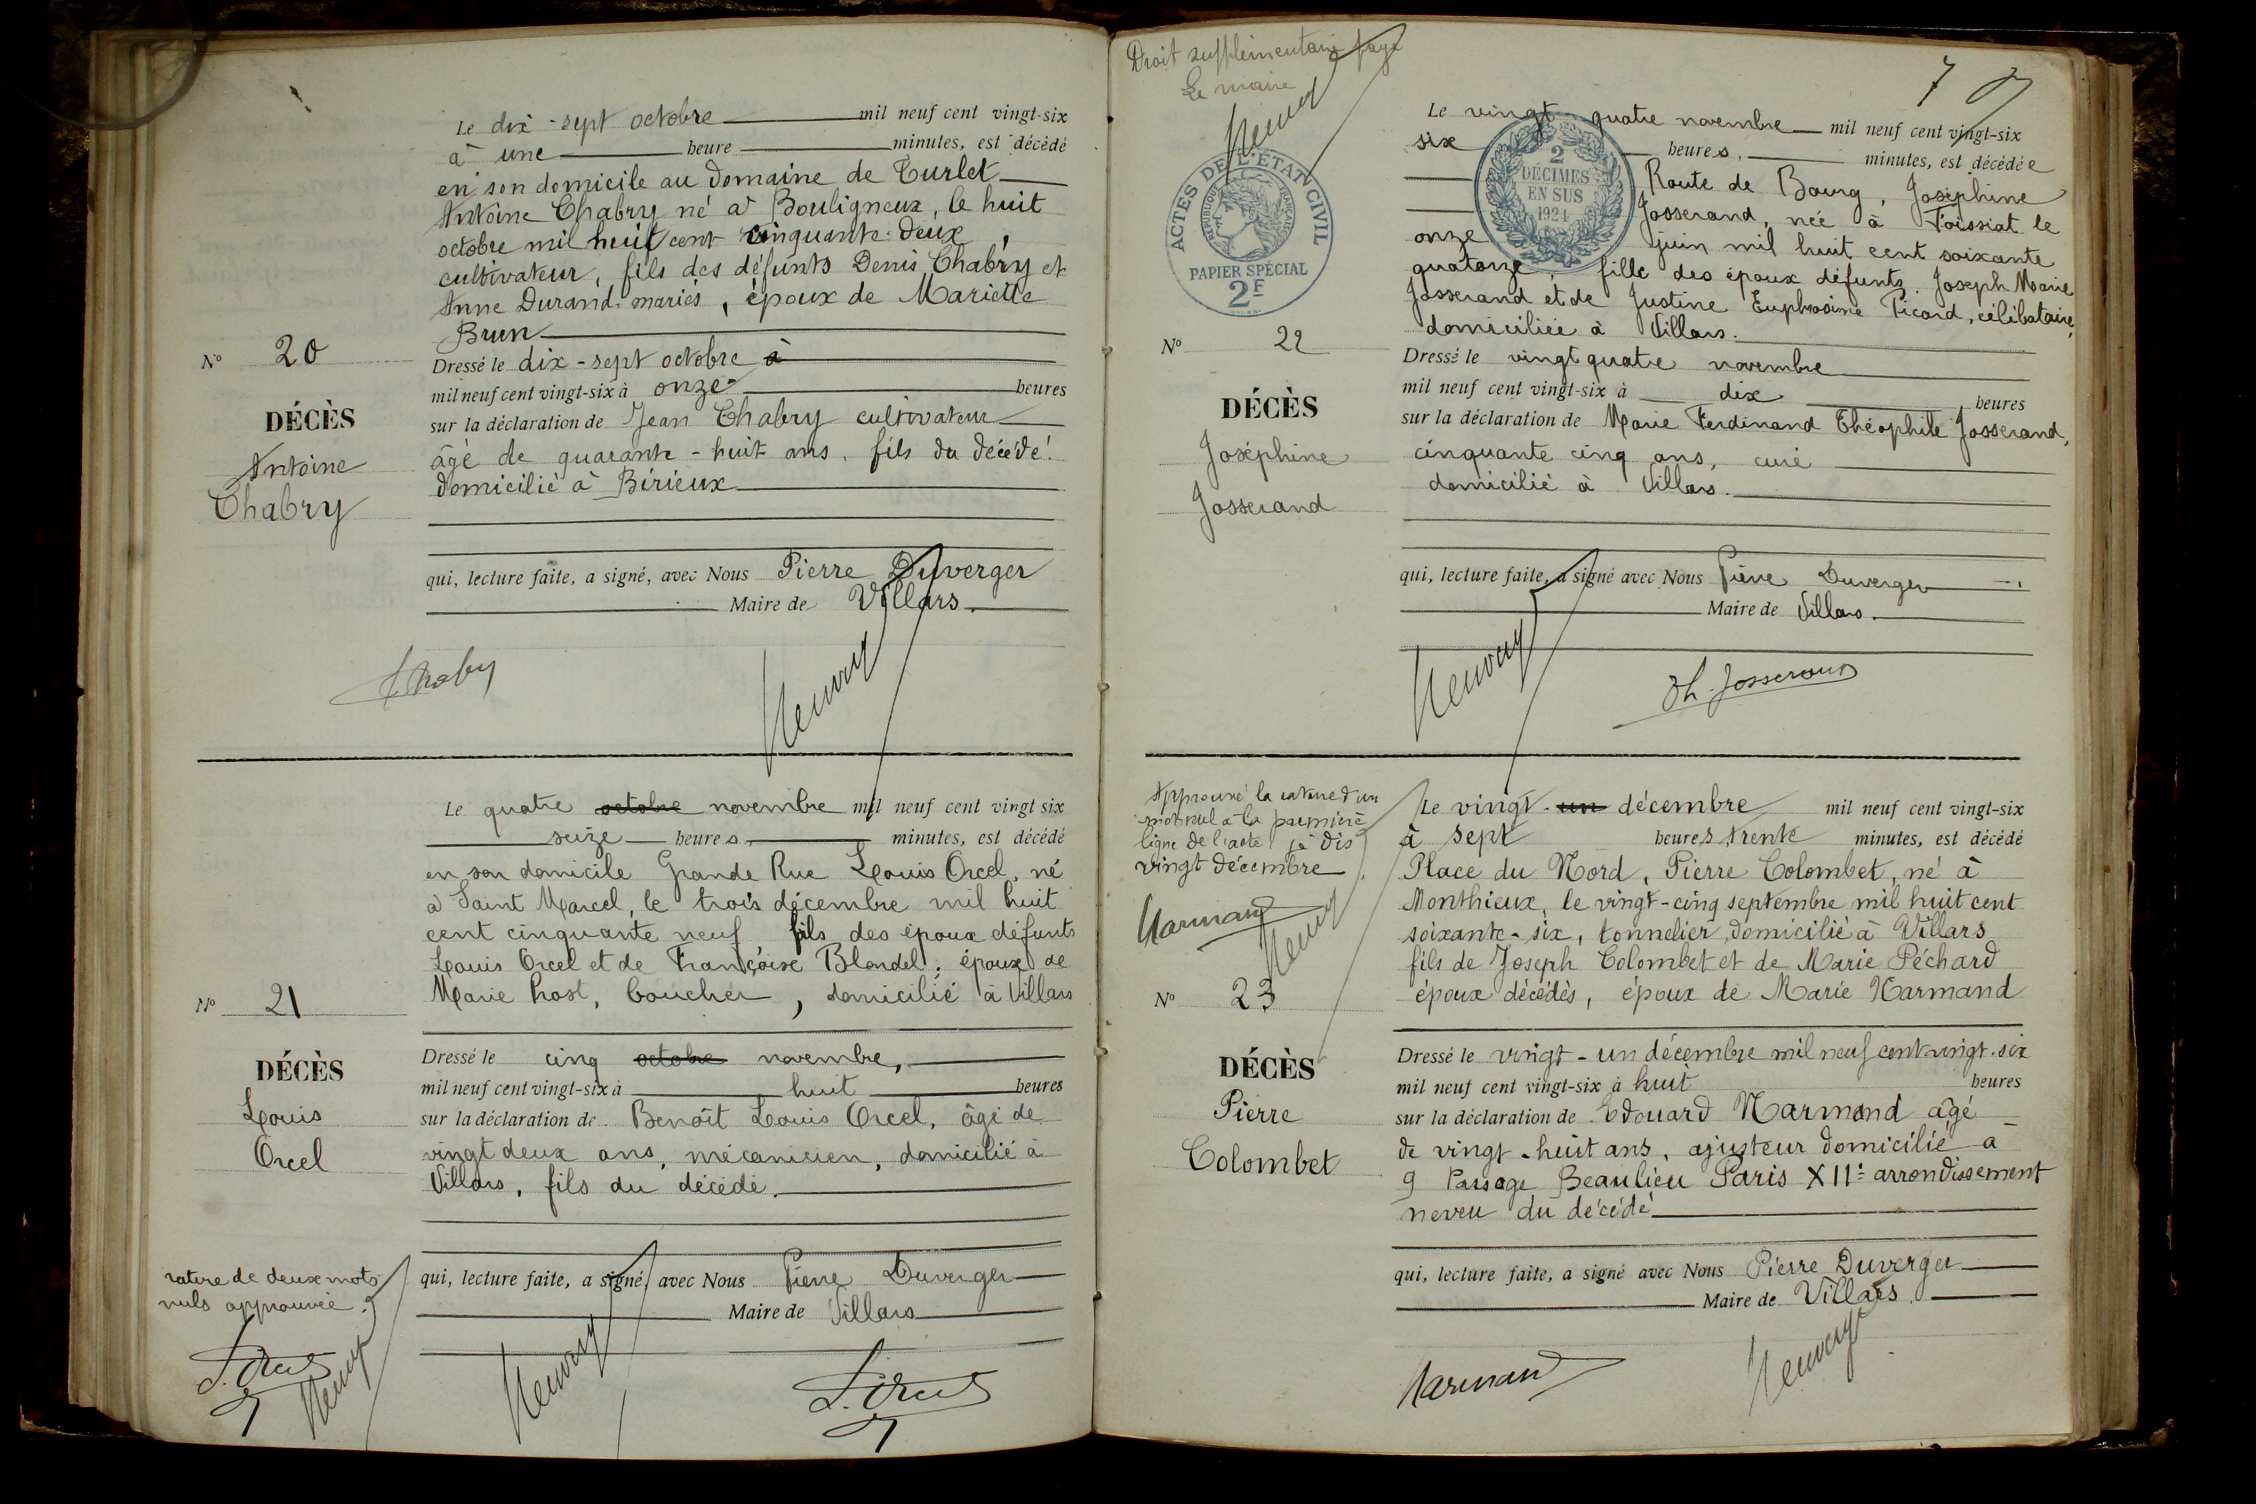 Le dix-sept octobre mil neuf cent vingt-six
à une heure minutes, est décédé
en son domicile au domaine de Turlet
Antoine Chabry né à Bouligneux, le huit
octobre mil huit cent cinquante-deux,
cultivateur, fils des défunts Denis Chabry et
Anne Durand mariés, époux de Mariette
Brun
Nº 20
DÉCÈS
Antoine
Chabry
Dressé le dix-sept octobre à
mil neuf cent vingt-six à onze heures
sur la déclaration de Jean Chabry cultivateur
âgé de quarante-huit ans, fils du décédé
domicilié à Birieux
qui, lecture faite, a signé, avec Nous Pierre Duverger
Maire de Villars.
Chabry
Le quatre octobre novembre mil neuf cent vingt six
seize heures minutes, est décédé
en son domicile Grande Rue Louis Orcel, né
à Saint Marcel, le trois décembre mil huit
cent cinquante neuf, fils des époux défunts
Louis Orcel et de Françoise Blondel, époux de
Marie Prost, boucher, domicilié à Villars
Nº 21
DÉCÈS
Louis
Orcel
Dressé le cinq octobre novembre,
mil neuf cent vingt-six à huit heures
sur la déclaration de Benoît Louis Orcel, âgé de
vingt deux ans, mécanicien, domicilié à
Villars, fils du décédé.
rature de deux mots
nuls approuvée.
qui, lecture faite, a signé, avec Nous Pierre Duverger
Maire de Villars
L. Orcel
L. Orcel
Droit supplémentaire payé
Le maire
7
ACTES DE L'ÉTAT CIVIL
RÉPUBLIQUE FRANÇAISE
PAPIER SPÉCIAL
2F
2
DÉCIMES
EN SUS
1924
Le vingt quatre novembre mil neuf cent vingt-six
six heures, minutes, est décédée
Route de Bourg, Joséphine
Josserand, née à Foissiat le
onze juin mil huit cent soixante
quatorze, fille des époux défunts Joseph Marie
Josserand et de Justine Euphrosine Picard, célibataire,
domiciliée à Villars.
Nº 22
DÉCÈS
Joséphine
Josserand
Dressé le vingt quatre novembre
mil neuf cent vingt-six à dix heures
sur la déclaration de Marie Ferdinand Théophile Josserand,
cinquante cinq ans, curé
domicilié à Villars.
qui, lecture faite, a signé avec Nous Pierre Duverger
Maire de Villars.
Th. Josserand
Approuvé la rature d'un
mot nul à la première
ligne de l'acte
vingt décembre
Narmand
Le vingt-un décembre mil neuf cent vingt-six
à sept heures trente minutes, est décédé
Place du Nord, Pierre Colombet, né à
Monthieux, le vingt-cinq septembre mil huit cent
soixante-six, tonnelier, domicilié à Villars
fils de Joseph Colombet et de Marie Péchard
époux décédés, époux de Marie Narmand
Nº 23
DÉCÈS
Pierre
Colombet
Dressé le vingt-un décembre mil neuf cent vingt-six
mil neuf cent vingt-six à huit heures
sur la déclaration de Edouard Narmand âgé
de vingt-huit ans, ajusteur domicilié à
9 Passage Beaulieu Paris XIIe arrondissement
neveu du décédé
qui, lecture faite, a signé avec Nous Pierre Duverger
Maire de Villars.
Narmand